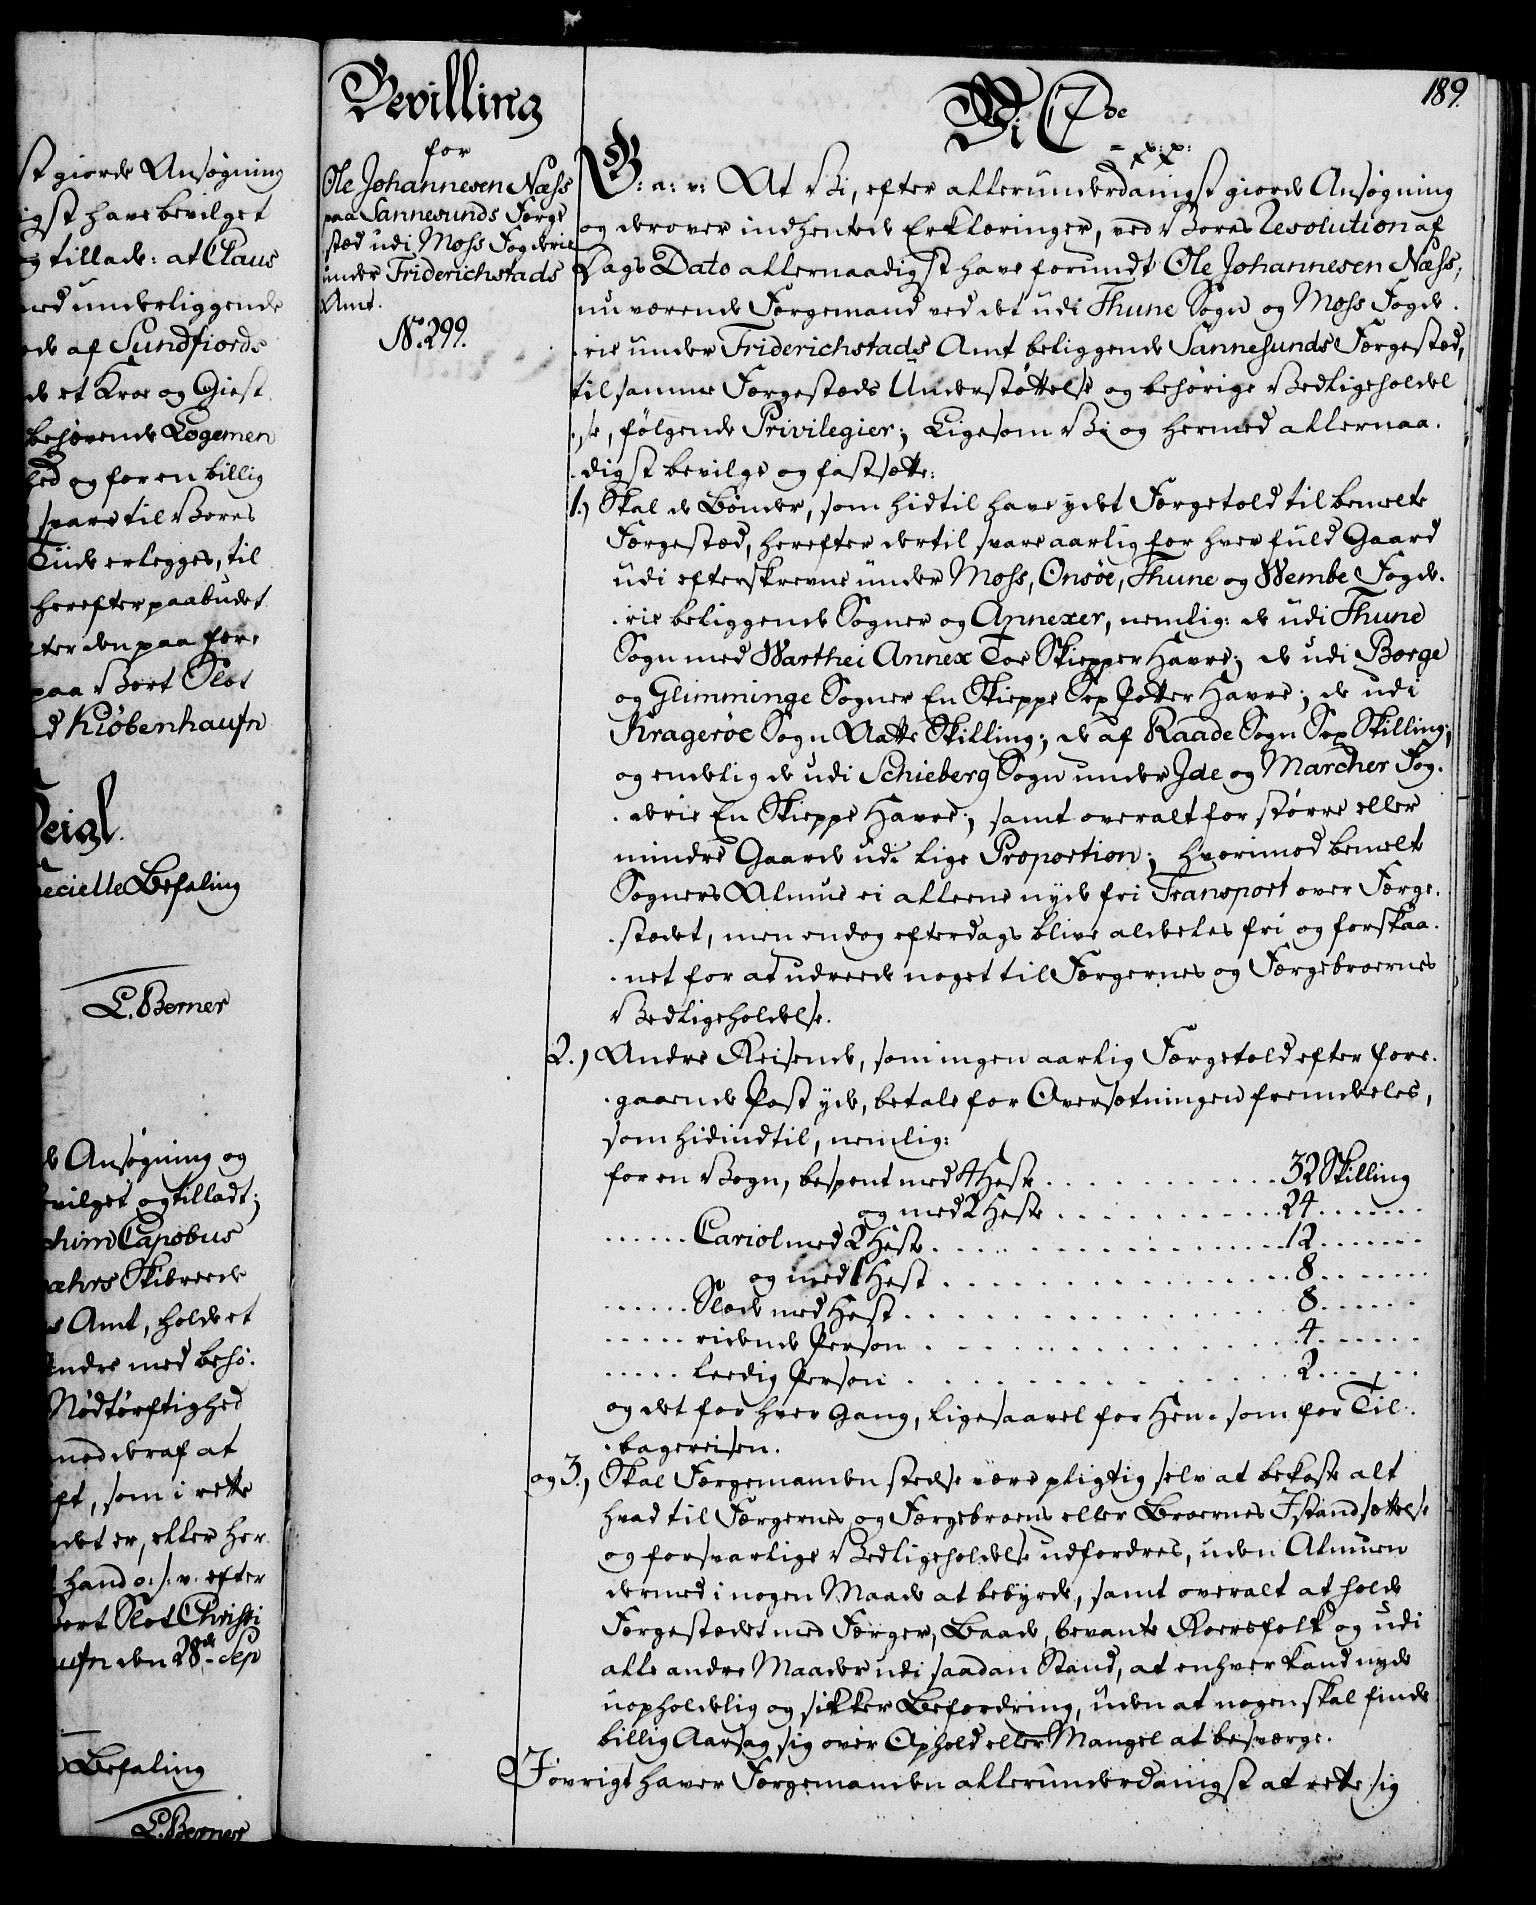 st giorde Ansøgning
igst have bevilget
g tillade: at Claus
med underliggende
ode af Sundfiords
de et Kroe og Giest
behøvende Logemen
hed og for en billig
svare til Vores
Tiide erlegges, til
herefter paabudet
efter den paa fore
paa Vort Slot
d Kiöbenhaufn
Seigl.
ecielle Befaling
L. Berner
de Ansøgning og
vilget og tilladt;
chim Capobus
Skibreede
s Amt, holde et
Andre med behø.
Nödtörftighed
mod deraf at
ft, som i rette
det er, eller her
hand o: s: v: efter
Vort Slot Christi
aufn den 28de Sep
Befaling
L. Berner
Bevilling
for
Ole Johannesen Næss
paa Sannesunds Færge
stæd udi Moss Fogderie
under Friderichstads
Amt.
No. 299.
189.
Vi C 7de
G: a: v: At Vi, efter allerunderdanigst giorde Ansøgning
og derover indhentede Erklæringer, ved Vores Resolution af
Dags Dato allernaadigst have forundt Ole Johannesen Næss,
nu værende Færgemand ved det udi Thune Sogn og Moss Fogde.
.rie under Friderichstads Amt beliggende Sannesunds Færgestæd,
til samme Færgestæds Understøttelse og behörige Vedligeholdel
.se, fölgende Privilegier; Ligesom Vi og hermed allernaa.
.digst bevilge og fastsætte:
1.) Skal de Bønder, som hidtil have ydet Færgetold til bemelte
Færgestæd, herefter dertil svare aarlig for hver fuld Gaard
udi efterskrevne under Moss, Onsøe, Thune og Wembe Fogde.
.rie beliggende Sogner og Annexer, nemlig: de udi Thune
Sogn med Warthei Annex Toe Skiepper Havre; de udi Borge
og Glimminge Sogner En Skieppe Sex Potter Havre; de udi
Kragerøe Sogn Aatte Skilling; de af Raade Sogn Sex Skilling;
og endelig de udi Schieberg Sogn under Ide og Marcher Fog.
.derie En Skieppe Havre; samt overalt for större eller
mindre Gaarde udi lige Proportion; hvorimod bemelte
Sogners Almue ei alleene nyde fri Transport over Færge.
.stædet, men endog efterdags blive aldeles fri og forskaa.
.net for at udreede noget til Færgernes og Færgebroernes
Vedligeholdelse.
2.) Andre Reisende, som ingen aarlig Færgetold efter fore.
.gaaende Post yde, betale for Oversætningen fremdeeles,
som hidindtil, nemlig:
for en Vogn, bespent med 4 Heste . . . . . . . . . . . 32 Skilling
og med 2 Heste . . . . . . . . . . . 24 . . . . . . .
. . . . . . Cariol med 2 Heste . . . . . . . . . . . . . 12 . . . . . . .
og med 1 Hest . . . . . . . . . . . . . . . 8 . . . . . . .
. . . . . . Slæde med Hest . . . . . . . . . . . . . . . 8 . . . . . .
. . . . . . ridende Person . . . . . . . . . . . . . . . 4 . . . . . .
. . . . . leedig Person . . . . . . . . . . . . . . . . 2 . . . . . .
og det for hver Gang, ligesaavel for Hen- som for Til.
.bagereisen.
og 3.) Skal Færgemanden stedse være pligtig selv at bekoste alt
hvad til Færgernes og Færgebroens eller Broernes Istandsættelse
og forsvarlige Vedligeholdelse udfordres, uden Almuen
dermed i nogen Maade at bebyrde, samt overalt at holde
Færgestædet med Færger, Baade, bevante Roersfolk og udi
alle andre Maader udi saadan Stand, at enhver kand nyde
uopholdelig og sikker Befordring, uden at nogen skal finde
billig Aarsag sig over Ophold eller Mangel at besværge.
I övrigt haver Færgemanden allerunderdanigst at rette sig